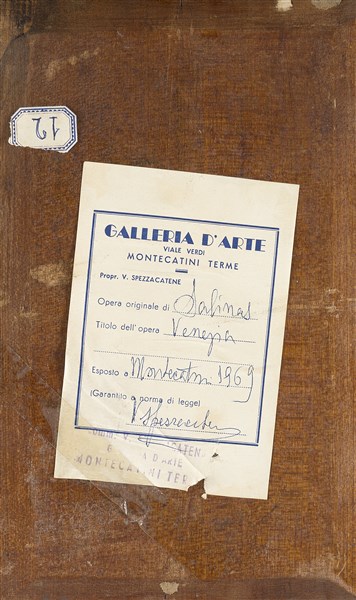 12
GALLERIA D'ARTE
VIALE VERDI
MONTECATINI TERME
Propr. V. SPEZZACATENE
Opera originale di Salinas
Titolo dell'opera Venezia
Esposto a Montecatini 1969
(Garantito a norma di legge)
V. Spezzacatene
MONTECATINI TER